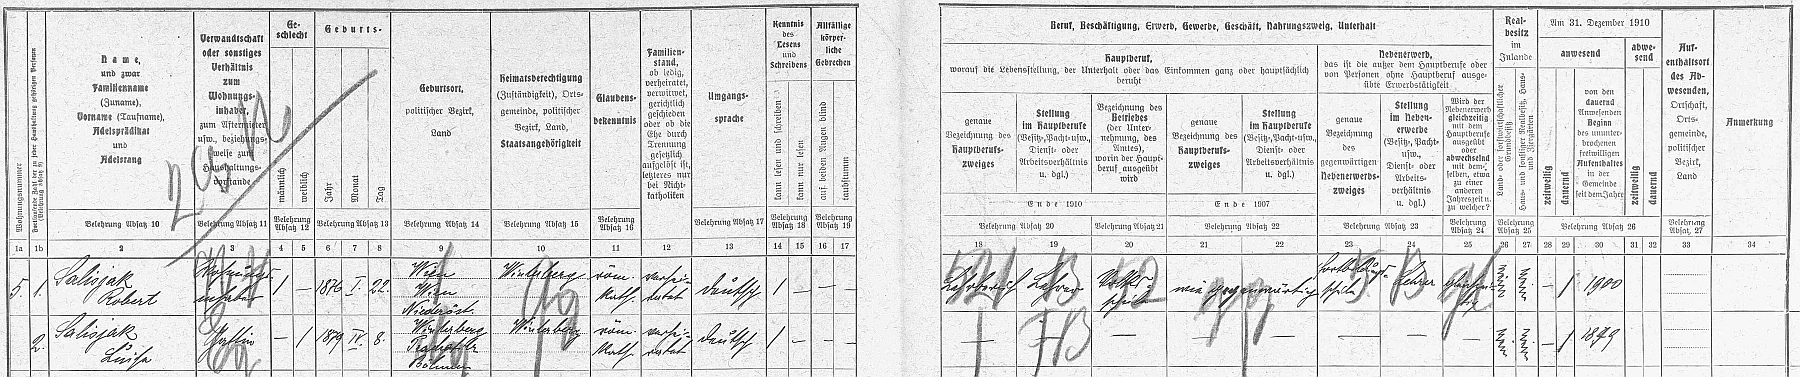 Name,
und zwar
Familienname
(Zuname),
Vorname (Taufname),
Adelsprädikat
und
Adelsrang
Verwandtschaft
oder sonstiges
Verhältnis
zum
Wohnungs-
inhaber,
zum Aftermieter
usw., beziehungs-
weise zum
Haushaltungs-
vorstande
Ge-
schlecht
männlich
weiblich
Geburts-
Jahr
Monat
Tag
Geburtsort,
politischer Bezirk,
Land
Heimatsberechtigung
(Zuständigkeit), Orts-
gemeinde, politischer
Bezirk, Land,
Staatsangehörigkeit
Glaubens-
bekenntnis
Familien-
stand,
ob ledig,
verheiratet,
verwitwet,
gerichtlich
geschieden
oder ob die
Ehe durch
Trennung
gesetzlich
aufgelöst ist,
letzteres nur
bei Nicht-
katholiken
Umgangs-
sprache
Kenntnis
des
Lesens
und
Schreibens
kann lesen und schreiben
kann nur lesen
Allfällige
körper-
liche
Gebrechen
auf beiden Augen blind
taubstumm
Wohnungsnummer
Belehrung Absatz 10
Belehrung Absatz 11
Belehrung Absatz 12
Belehrung Absatz 13
Belehrung Absatz 14
Belehrung Absatz 15
Belehrung Absatz 16
Belehrung Absatz 12
Belehrung Absatz 17
Belehrung Absatz 18
Belehrung Absatz 19
1a 1b 2 3 4 5 6 7 8 9 10 11 12 13 14 15 16 17
5. 1. Salisjak
Robert
Wohnungs-
inhaber
1 — 1876 I. 22.
Wien
Wien
Niederöst.
Winterberg
röm.
kath.
verhei-
ratet
Deutsch
1 — — —
2. Salisjak
Luise
Gattin
— 1 1879 IV. 8.
Winterberg
Prachatitz
Böhmen
Winterberg
röm.
kath.
verhei-
ratet
Deutsch
1 — — —
Beruf, Beschäftigung, Erwerb, Gewerbe, Geschäft, Nahrungszweig, Unterhalt
Hauptberuf,
worauf die Lebensstellung, der Unterhalt oder das Einkommen ganz oder hauptsächlich
beruht
genaue
Bezeichnung des
Hauptberufs-
zweiges
Stellung
im Hauptberufe
(Besitz-, Pacht- usw.,
Dienst- oder
Arbeitsverhältnis
u. dgl.)
Bezeichnung des
Betriebes
(der Unter-
nehmung, des
Amtes),
worin der Haupt-
beruf ausgeübt
wird
genaue
Bezeichnung des
Hauptberufs-
zweiges
Stellung
im Hauptberufe
(Besitz-, Pacht- usw.,
Dienst- oder
Arbeitsverhältnis
u. dgl.)
Ende 1910
Ende 1907
Nebenerwerb,
das ist die außer dem Hauptberufe oder
von Personen ohne Hauptberuf ausge-
übte Erwerbstätigkeit
genaue
Bezeichnung
des
gegenwärtigen
Nebenerwerbs-
zweiges
Stellung
im Neben-
erwerbe
(Besitz-, Pacht-
usw.,
Dienst- oder
Arbeits-
verhältnis
u. dgl.)
Wird der
Nebenerwerb
gleichzeitig
mit dem
Hauptberufe
ausgeübt
oder
abwechselnd
mit dem-
selben, etwa
zu einer
anderen
Jahreszeit u.
zu welcher?
Real-
besitz
im
Inlande
Am 31. Dezember 1910
anwesend
abwe-
send
zeitweilig
dauernd
von den
dauernd
Anwesenden
Beginn
des ununter-
brochenen
freiwilligen
Aufenthaltes
in der
Gemeinde
seit dem Jahre
zeitweilig
dauernd
Auf-
enthaltsort
des Ab-
wesenden,
Ortschaft,
Orts-
gemeinde,
politischer
Bezirk,
Land
Anmerkung
Belehrung Absatz 20
Belehrung Absatz 21
Belehrung Absatz 22
Belehrung Absatz 23
Belehrung Absatz 24
Belehrung Absatz 24
Belehrung Absatz 25
Belehrung Absatz 26
Belehrung Absatz 27
18 19 20 21 22 23 24 25 26 27 28 29 30 31 32 33 34
Lehrberuf
Lehrer
Volks-
schule
wie gegenwärtig
Lehrer
— 1 1900
— — — — — — —
— 1 1899